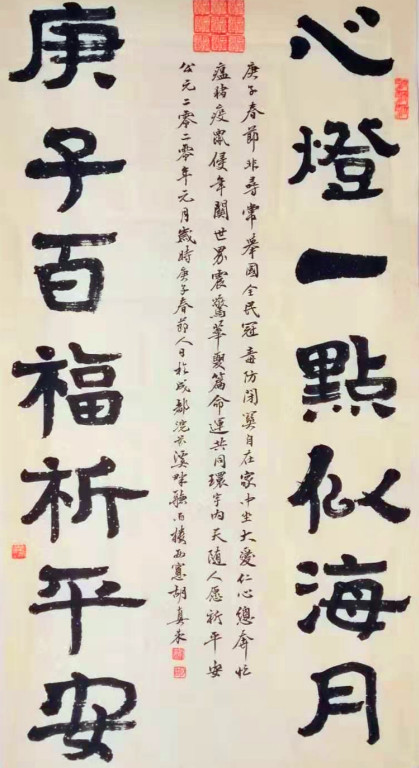 心燈一點似海月
庚子春節非尋常舉國全民冠毒防閉自在家中坐大愛仁心總奔忙
瘟豬疫鼠侵年關世界震驚華夏篇命運共同環宇內天隨人愿祈平安
公元二零二零年元月歲時庚子春節人日於成都浣花溪畔聽雨樓西窻胡真来
庚子百福祈平安